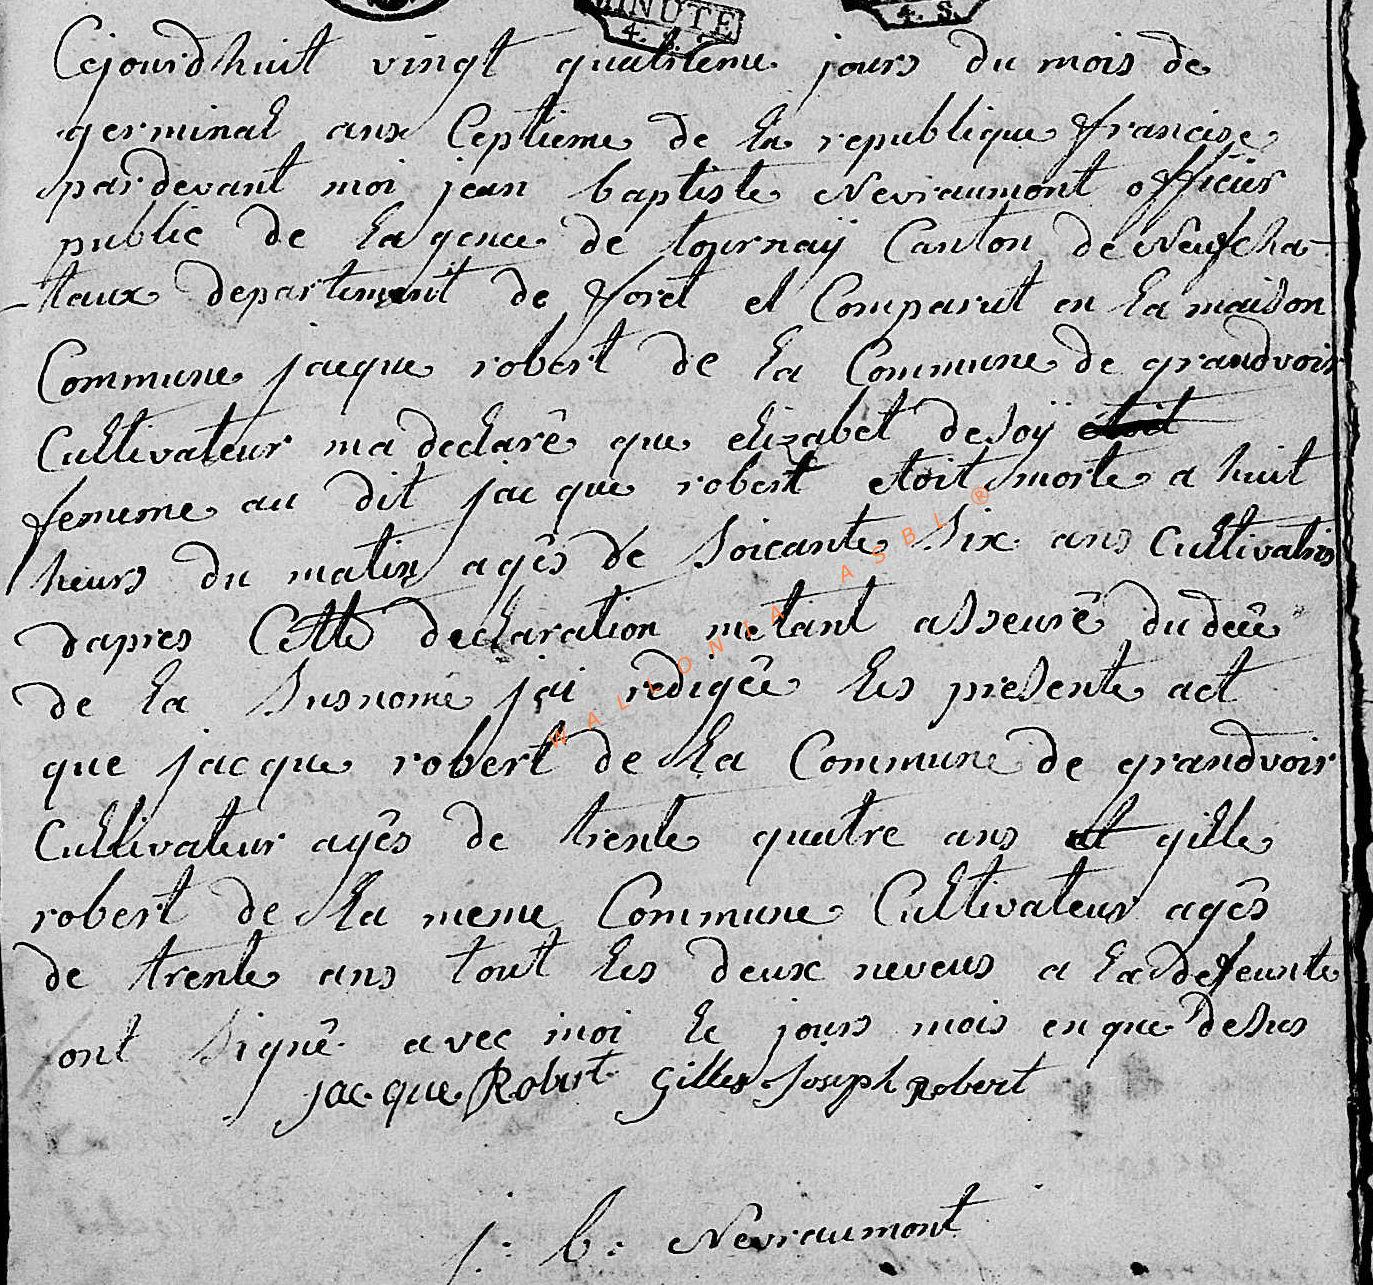 MINUTE
4. S.
4. S.
Cejourdhuit vingt quatrieme jours du mois de
germinal anx Ceptieme de la republique francise
pardevant moi jean baptiste Nevraumont officier
public de lagence de tournaÿ Canton de Neufcha-
-taux departiment de foret et Comparut en la maison
Commune jacque robert de la Commune de grandvoir
Cultivateur ma declarê que elizabet desoÿ etoit
femme au dit jacque robert etoit morte a huit
heurs du matin agês de soicante six ans Cultivatris
dapres Cette declaration metant asseurê du decê
de la susnomê jai redigêe les presente act
que jacque robert de la Commune de grandvoir
Cultivateur agês de trente quatre ans et gille
robert de la meme Commune Cultivateur agês
de trente ans tout les deux neveus a la defeunte
ont signê avec moi le jours mois en que desus
jacque Robert Gilles Joseph Robert
j: b: Nevraumont
WALLONIA ASBL ®